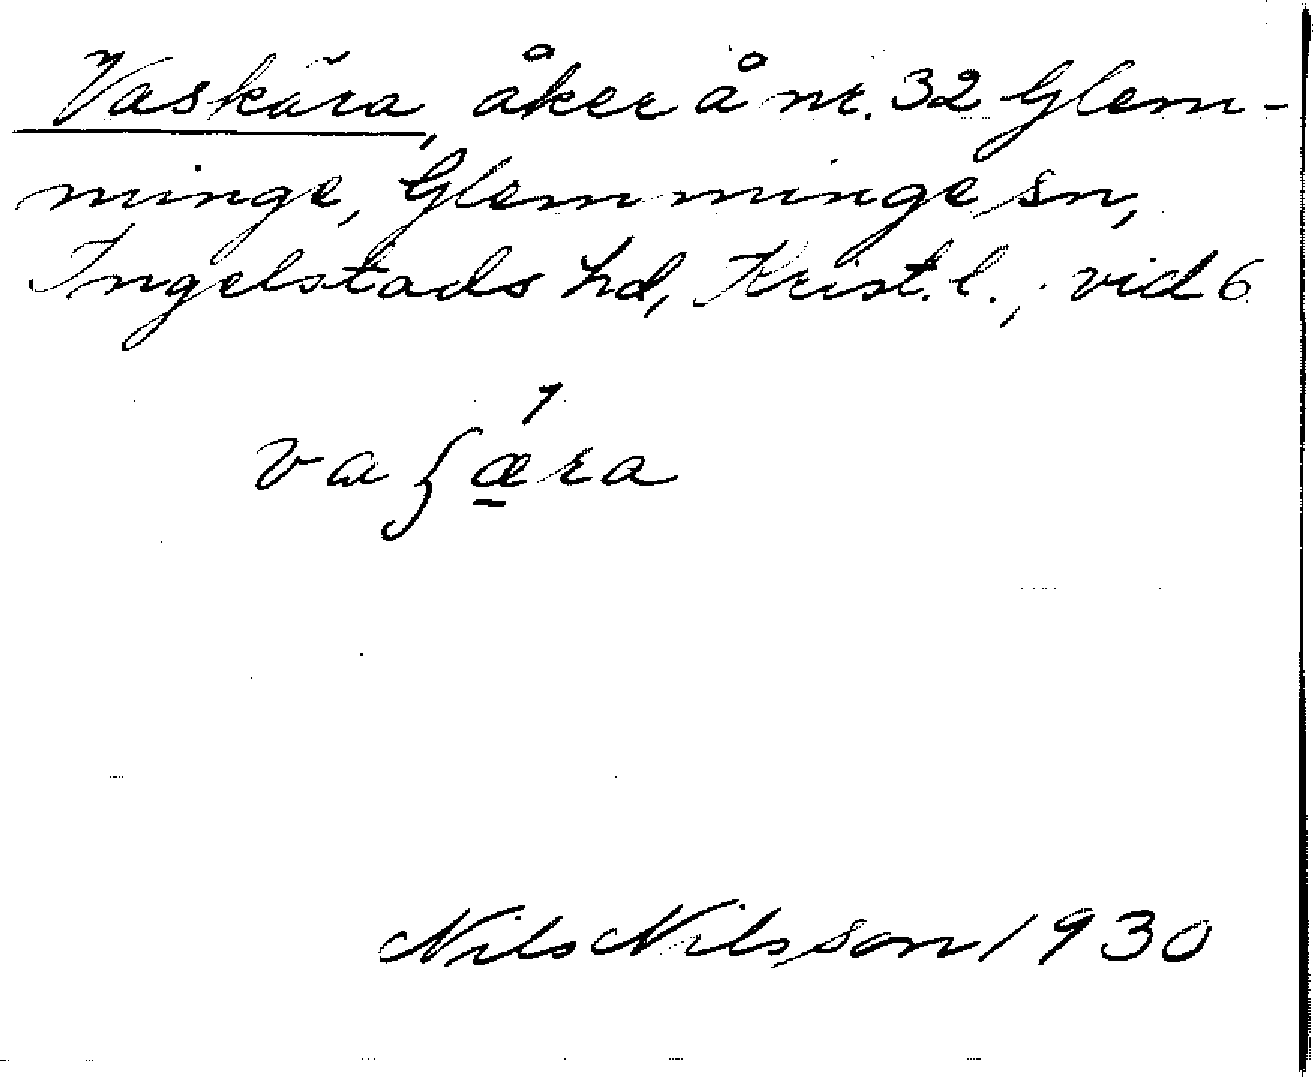 Vaskära, åker å nr. 32 Glem-
minge, Glemminge sn,
Ingelstads hd, Krist. l., vid 6
vaʃǽ̱ra
Nils Nilsson 1930